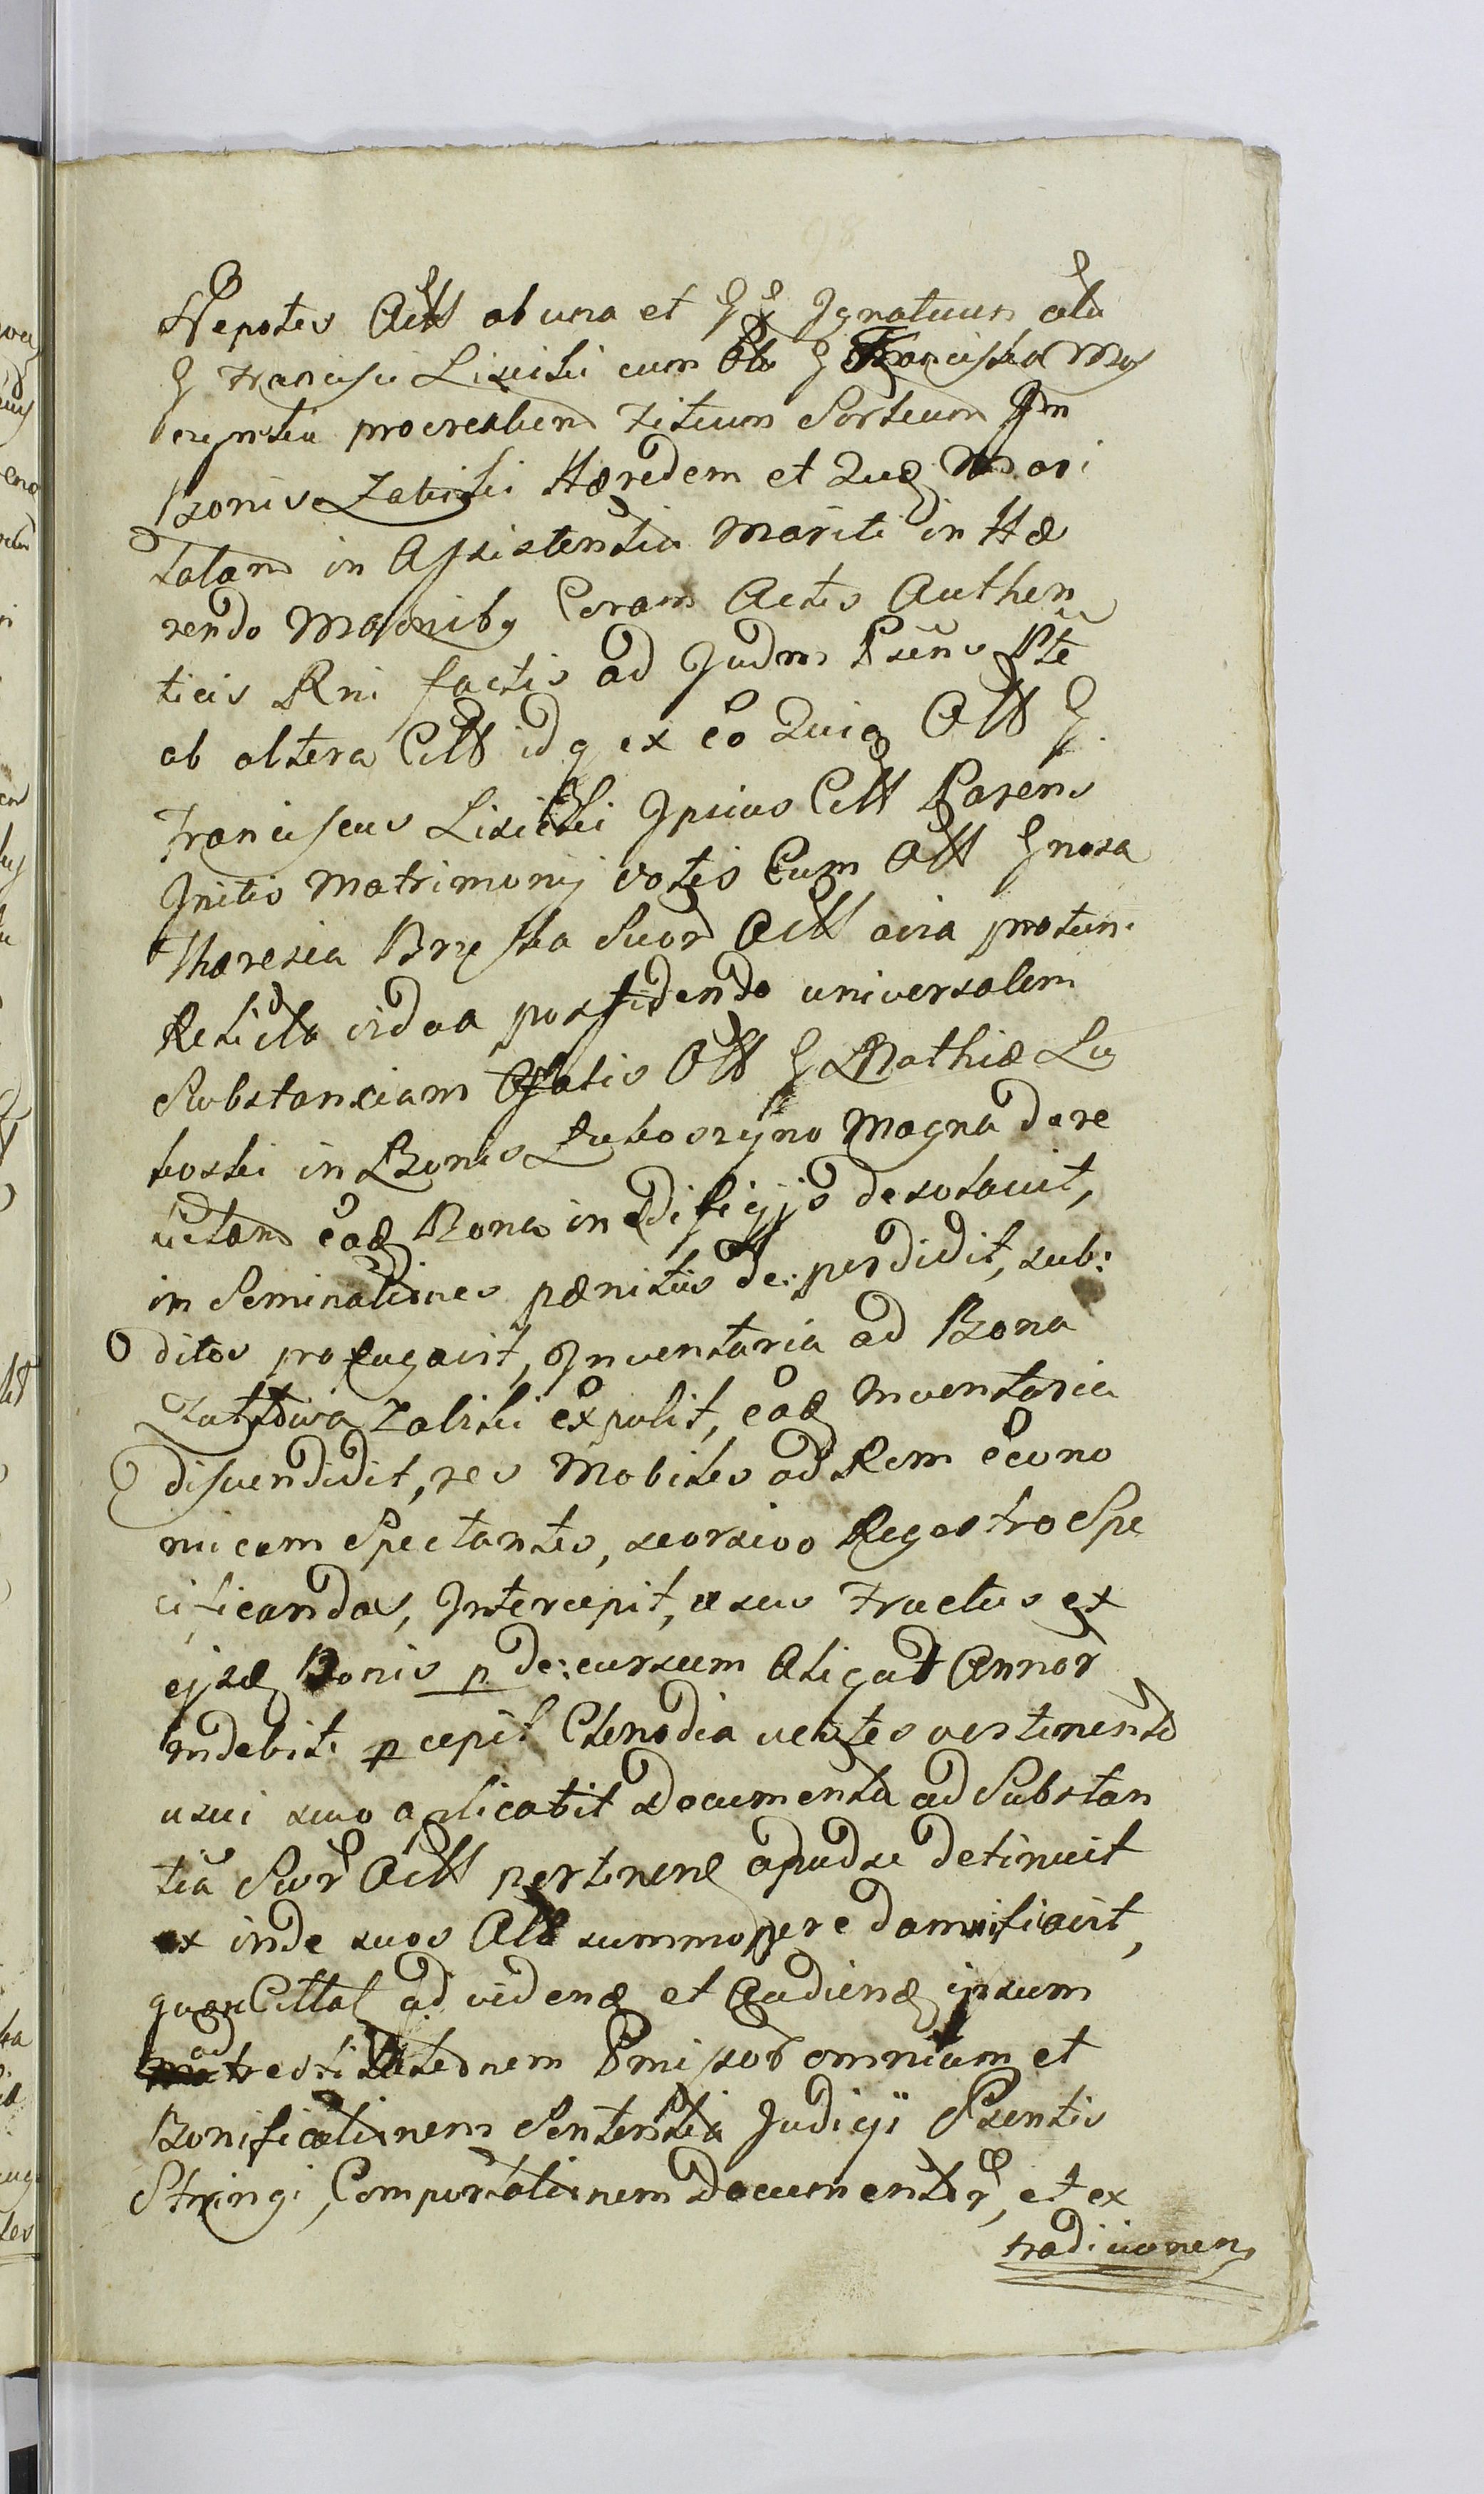 Nepotes Actt ab una et G G Ignatium olim
G Francisci Lisicki cum olim G Franciska Mo
czynska procreatum Filium Sortium In
Bonis Zabicki Hæredem et Quæ Mari
tatam in Assistentia Mariti in Hæ
rendo Mãonibq Coram Actis Authen
ticis Rni factis ad Judm Psens Pte
ab altera Citt idq ex eo Quia Ott G
Franciscus Lisicki Ipsius Citt Parens
Initis Matrimonij votis Cum Ott Gnosa
Theresia Brzeska Suor Actt avia protun.
Relicta vidua possidendo universalem
Substanciam Ofatis Ott G Mathiæ Lu
boski in Bonis Luboszyno Magna dere
lictam ead Bona in ædificijs desolavit,
in Seminationes pænitus de: perdidit, sub:
ditos profugavit, Inventaria ad Bona
Zabicki expulit, ead Inventaria
disvendidit, res Mobiles ad Rem econo
micam Spectantes, seorsivo Regestro Spe
cificandas, Intercepit, usus Fructus ex
ejsd Bonis p de:cursum Aliquot Annor
indebite pcepit Clenodia vestes vestimenta
usui suo aplicabit Documenta ad Substan
tia Suor Actt pertinen apud se detinuit
ex inde suos Att summopere damnificavit,
quar Cittat ad videnđ et Audienđ ipsum
ad restitutionem Pmissor omnium et
Bonificationem Sententia Judicij Psentis
Stringi, Comportationem Documentor, et ex
tradicionem